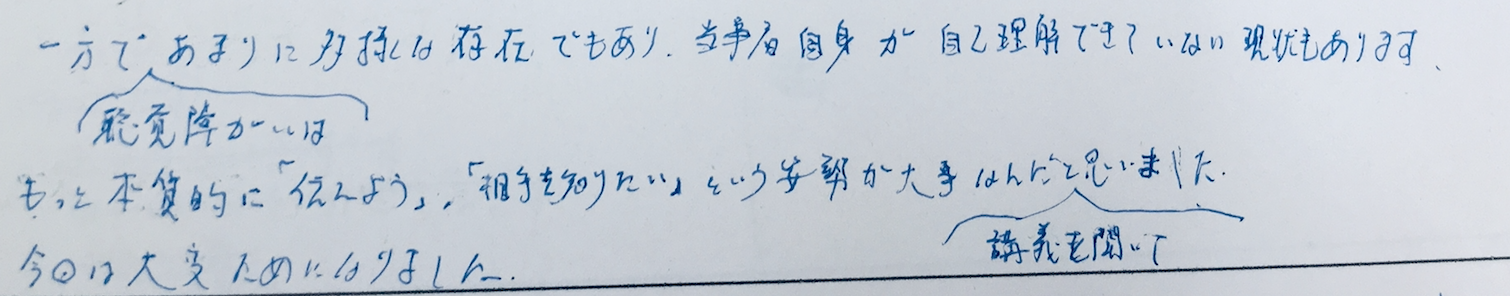 一方であまりに多様な存在でもあり、当事者自身が自己理解できていない現状もあります、
聴覚障がいは
もっと本質的に「伝えよう」,「相手を知りたい」という姿勢が大事なんだと思いました.
講義を聞いて
今日は大変ためになりました.